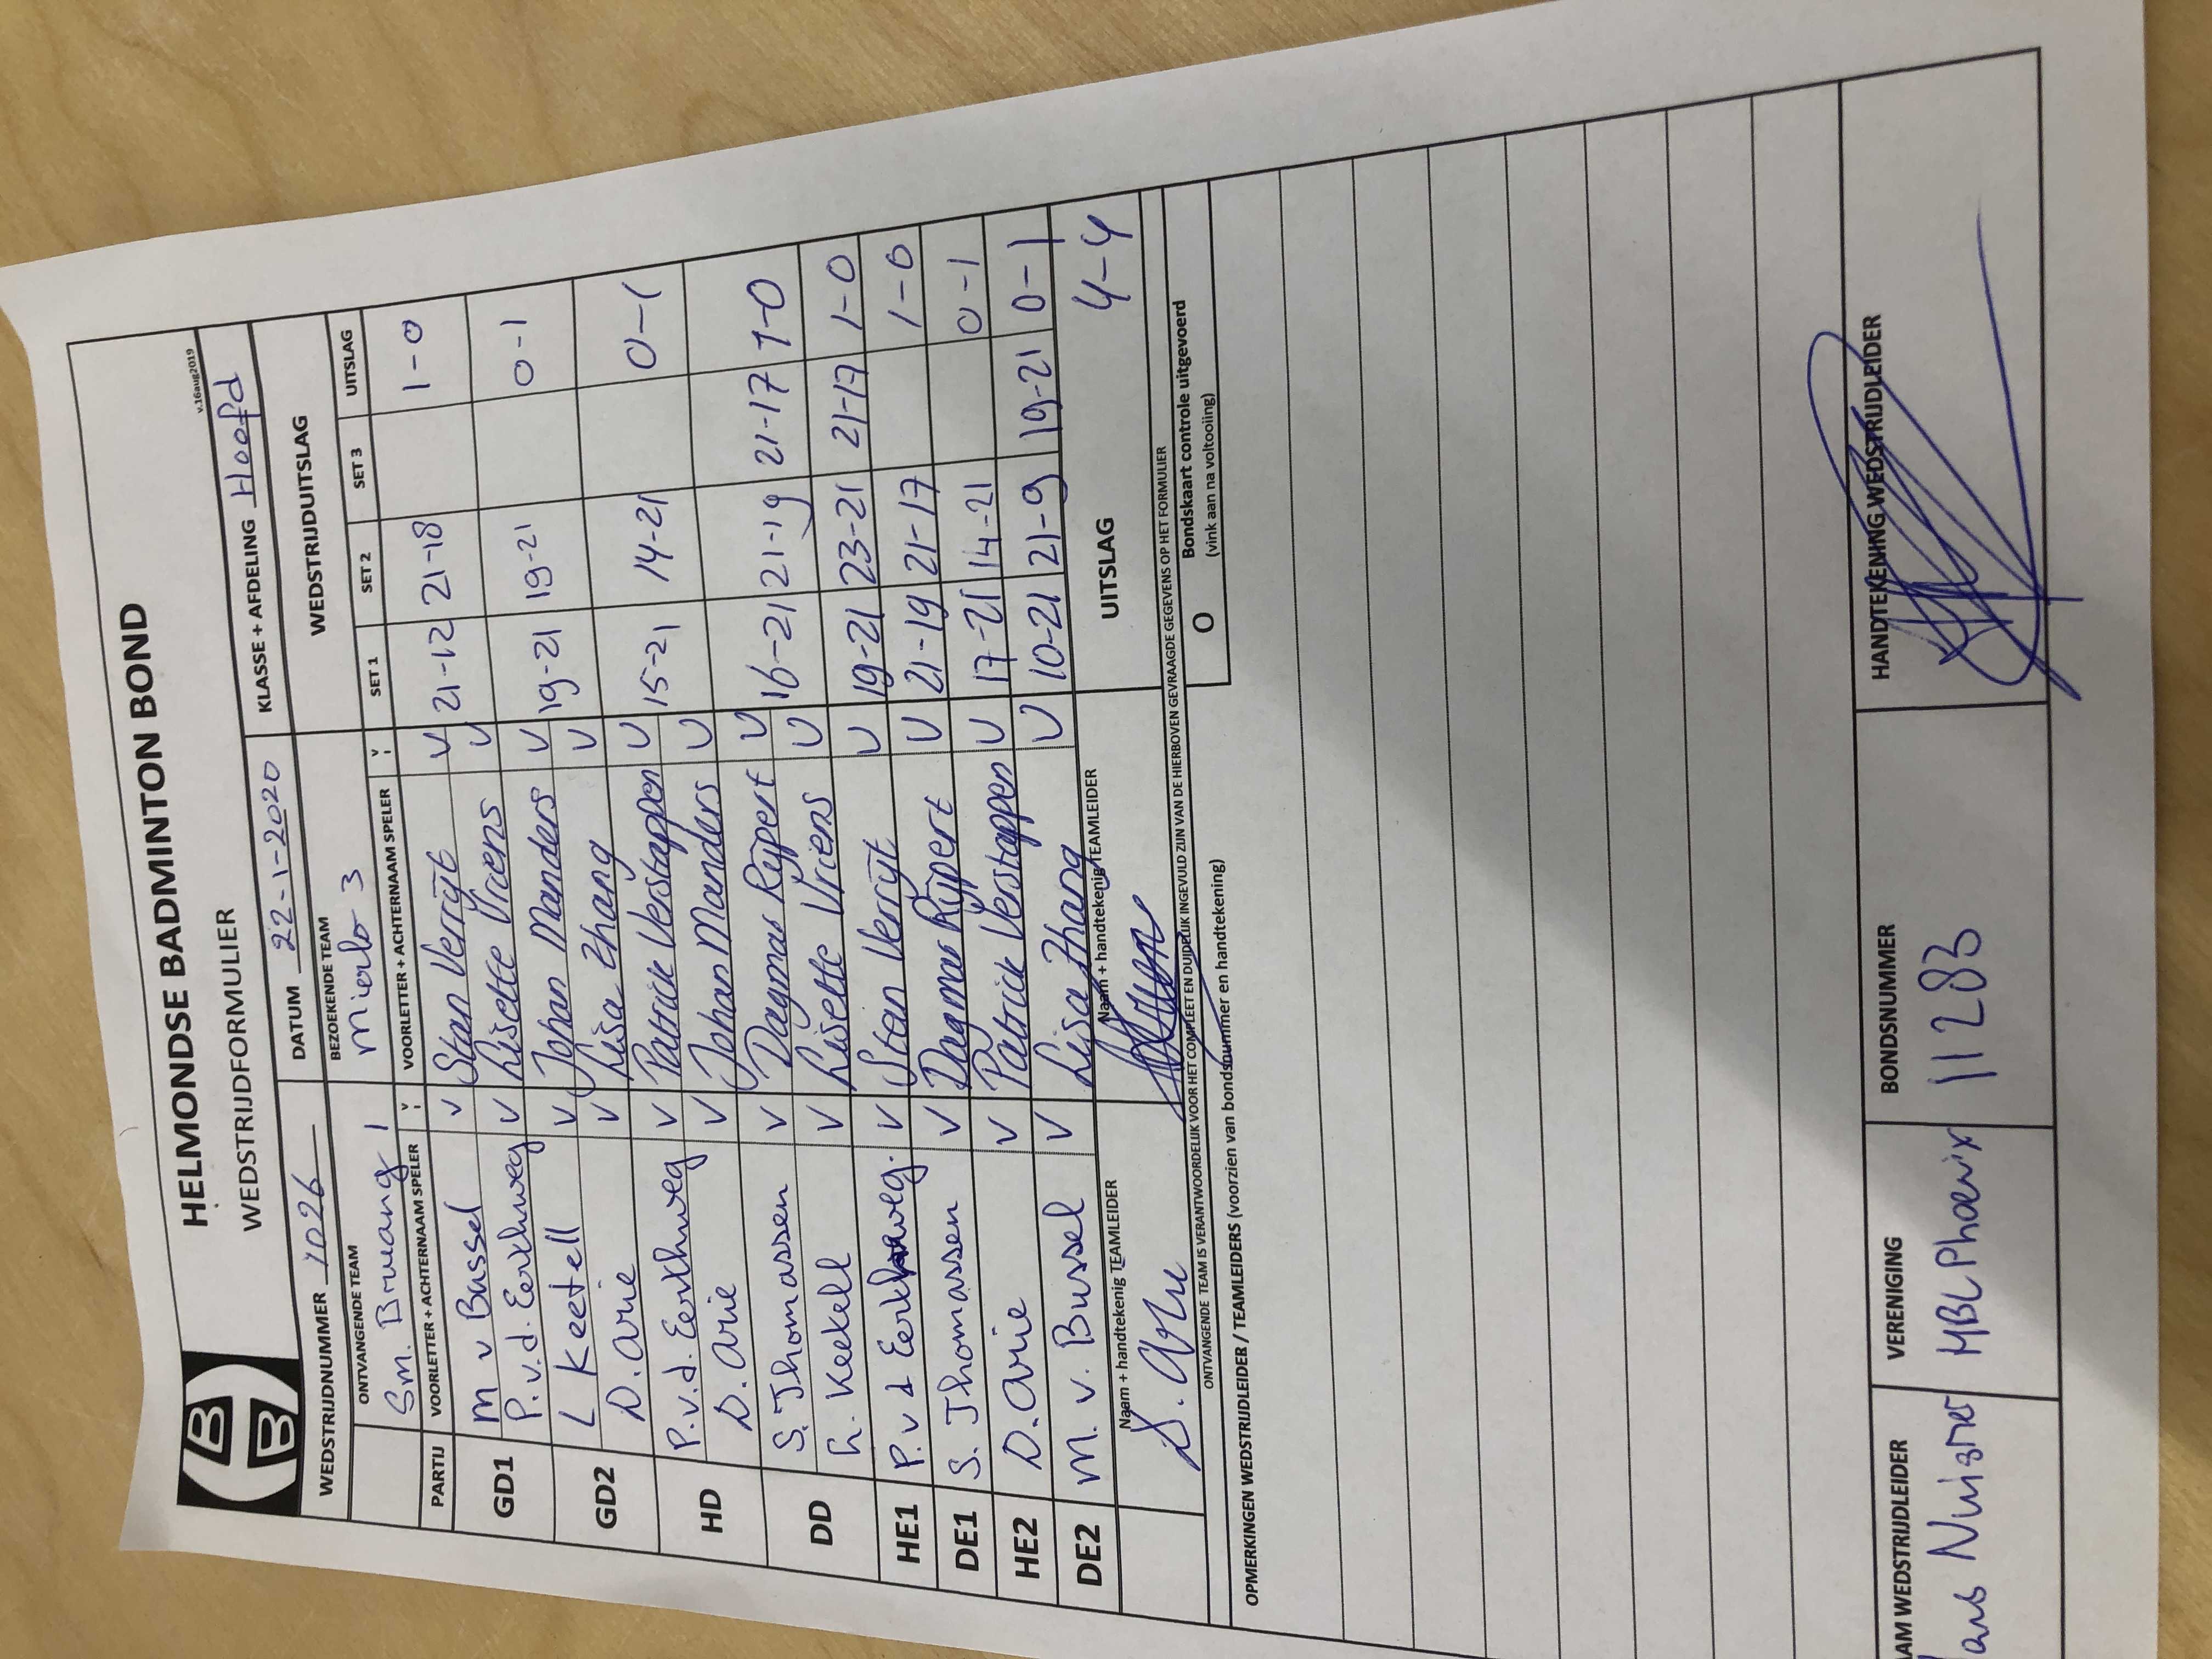 HELMONDSE BADMINTON BOND
WEDSTRIJDFORMULIER
v.16aug2019
WEDSTRIJDNUMMER 1026 DATUM 22-1-2020 KLASSE + AFDELING Hoofd
ONTVANGENDE TEAM BEZOEKENDE TEAM WEDSTRIJDUITSLAG
Sm. Bruwang 1 Mierlo 3
PARTIJ VOORLETTER + ACHTERNAAM SPELER V VOORLETTER + ACHTERNAAM SPELER V SET 1 SET 2 SET 3 UITSLAG
GD1 M v Bussel V Stan Verrijt V 21-12 21-18 1-0
P.v.d. Eerkhweg V Lisette Vriens V
GD2 L Keetell V Johan Manders V 19-21 19-21 0-1
D. Arie V Lisa Zhang V
HD P.v.d. Eerkhweg V Patrick Verstappen V 15-21 14-21 0-1
D. Arie V Johan Manders V
DD S. Thomassen V Dagmar Rijpert V 16-21 21-19 21-17 1-0
L. Keetell V Lisette Vriens V
HE1 P. v d Eerkhweg. V Stan Verrijt V 19-21 23-21 21-17 1-0
DE1 S. Thomassen V Dagmar Rijpert V 21-19 21-17 1-0
HE2 D. Arie V Patrick Verstappen V 17-21 14-21 0-1
DE2 M. v. Bussel V Lisa Zhang V 10-21 21-9 19-21 0-1
Naam + handtekenig TEAMLEIDER Naam + handtekenig TEAMLEIDER UITSLAG 4-4
ONTVANGENDE TEAM IS VERANTWOORDELIJK VOOR HET COMPLEET EN DUIDELIJK INGEVULD ZIJN VAN DE HIERBOVEN GEVRAAGDE GEGEVENS OP HET FORMULIER
O Bondskaart controle uitgevoerd
(vink aan na voltooiing)
OPMERKINGEN WEDSTRIJDLEIDER / TEAMLEIDERS (voorzien van bondsnummer en handtekening)
AM WEDSTRIJDLEIDER VERENIGING BONDSNUMMER HANDTEKENING WEDSTRIJDLEIDER
MBC Phoenix 11283